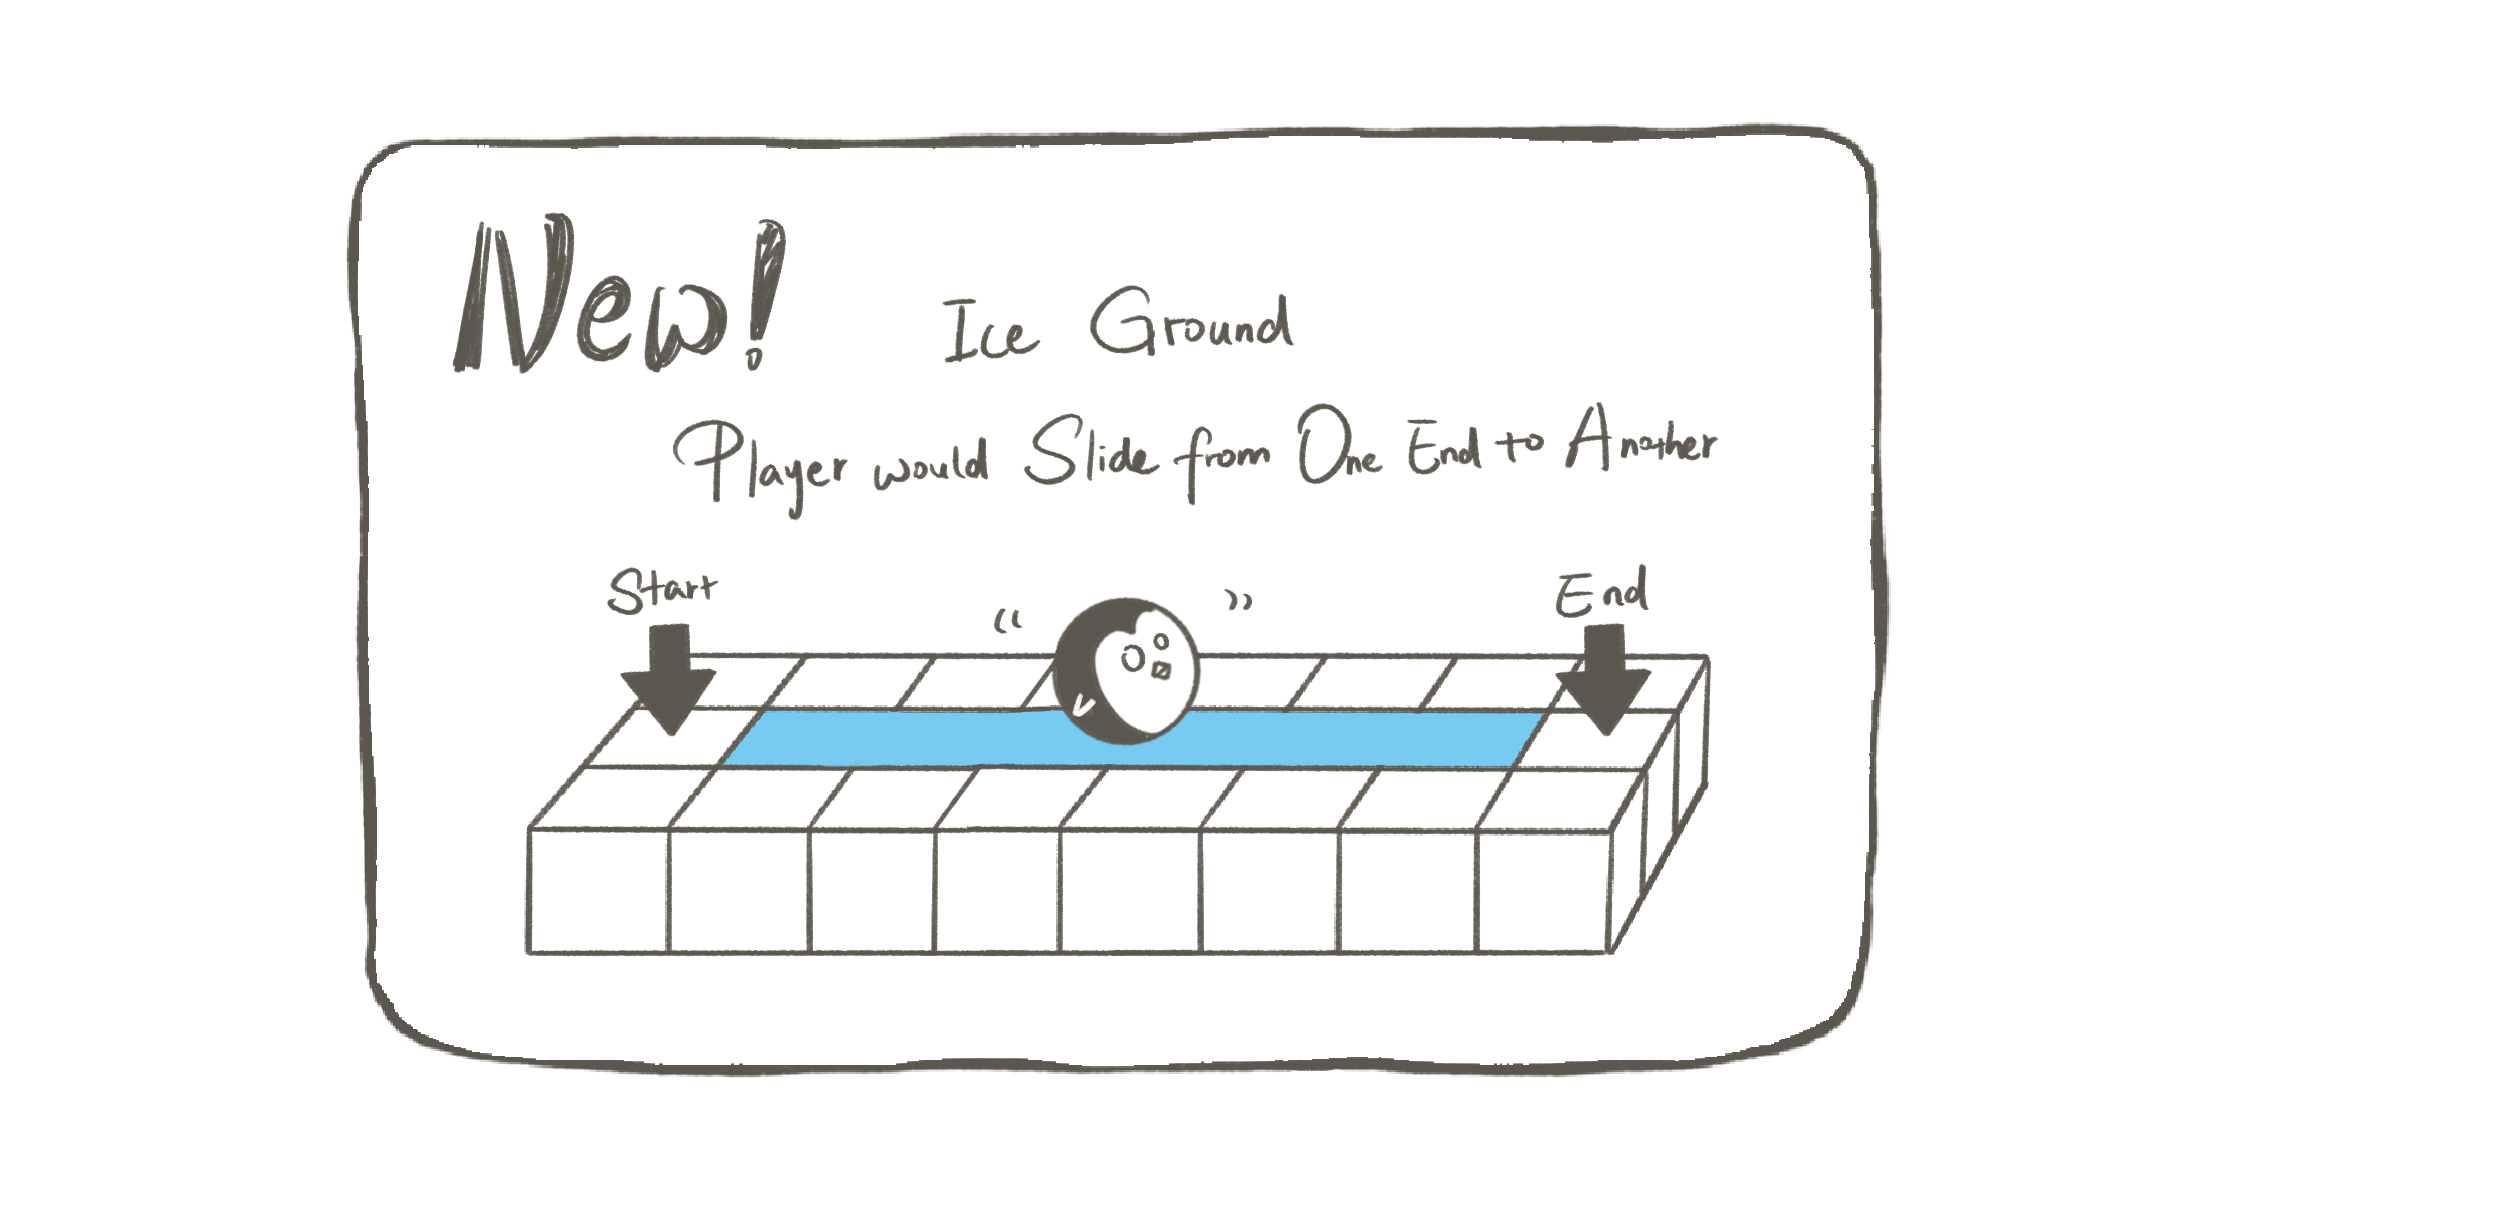 New!
Ice Ground
Player would Slide from One End to Another
Start
End